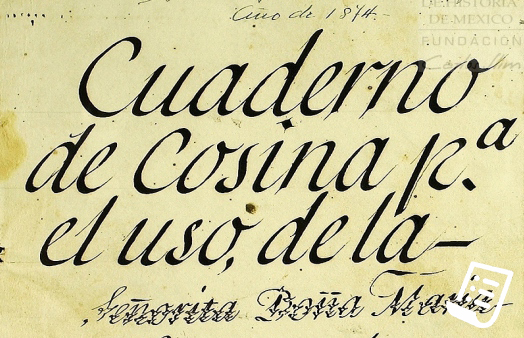 Año de 1874.
DE HISTORIA
DE MEXICO
FUNDACIÓN
Cuaderno
de Cosina p.ª
el uso, de la-
Señorita Doña María